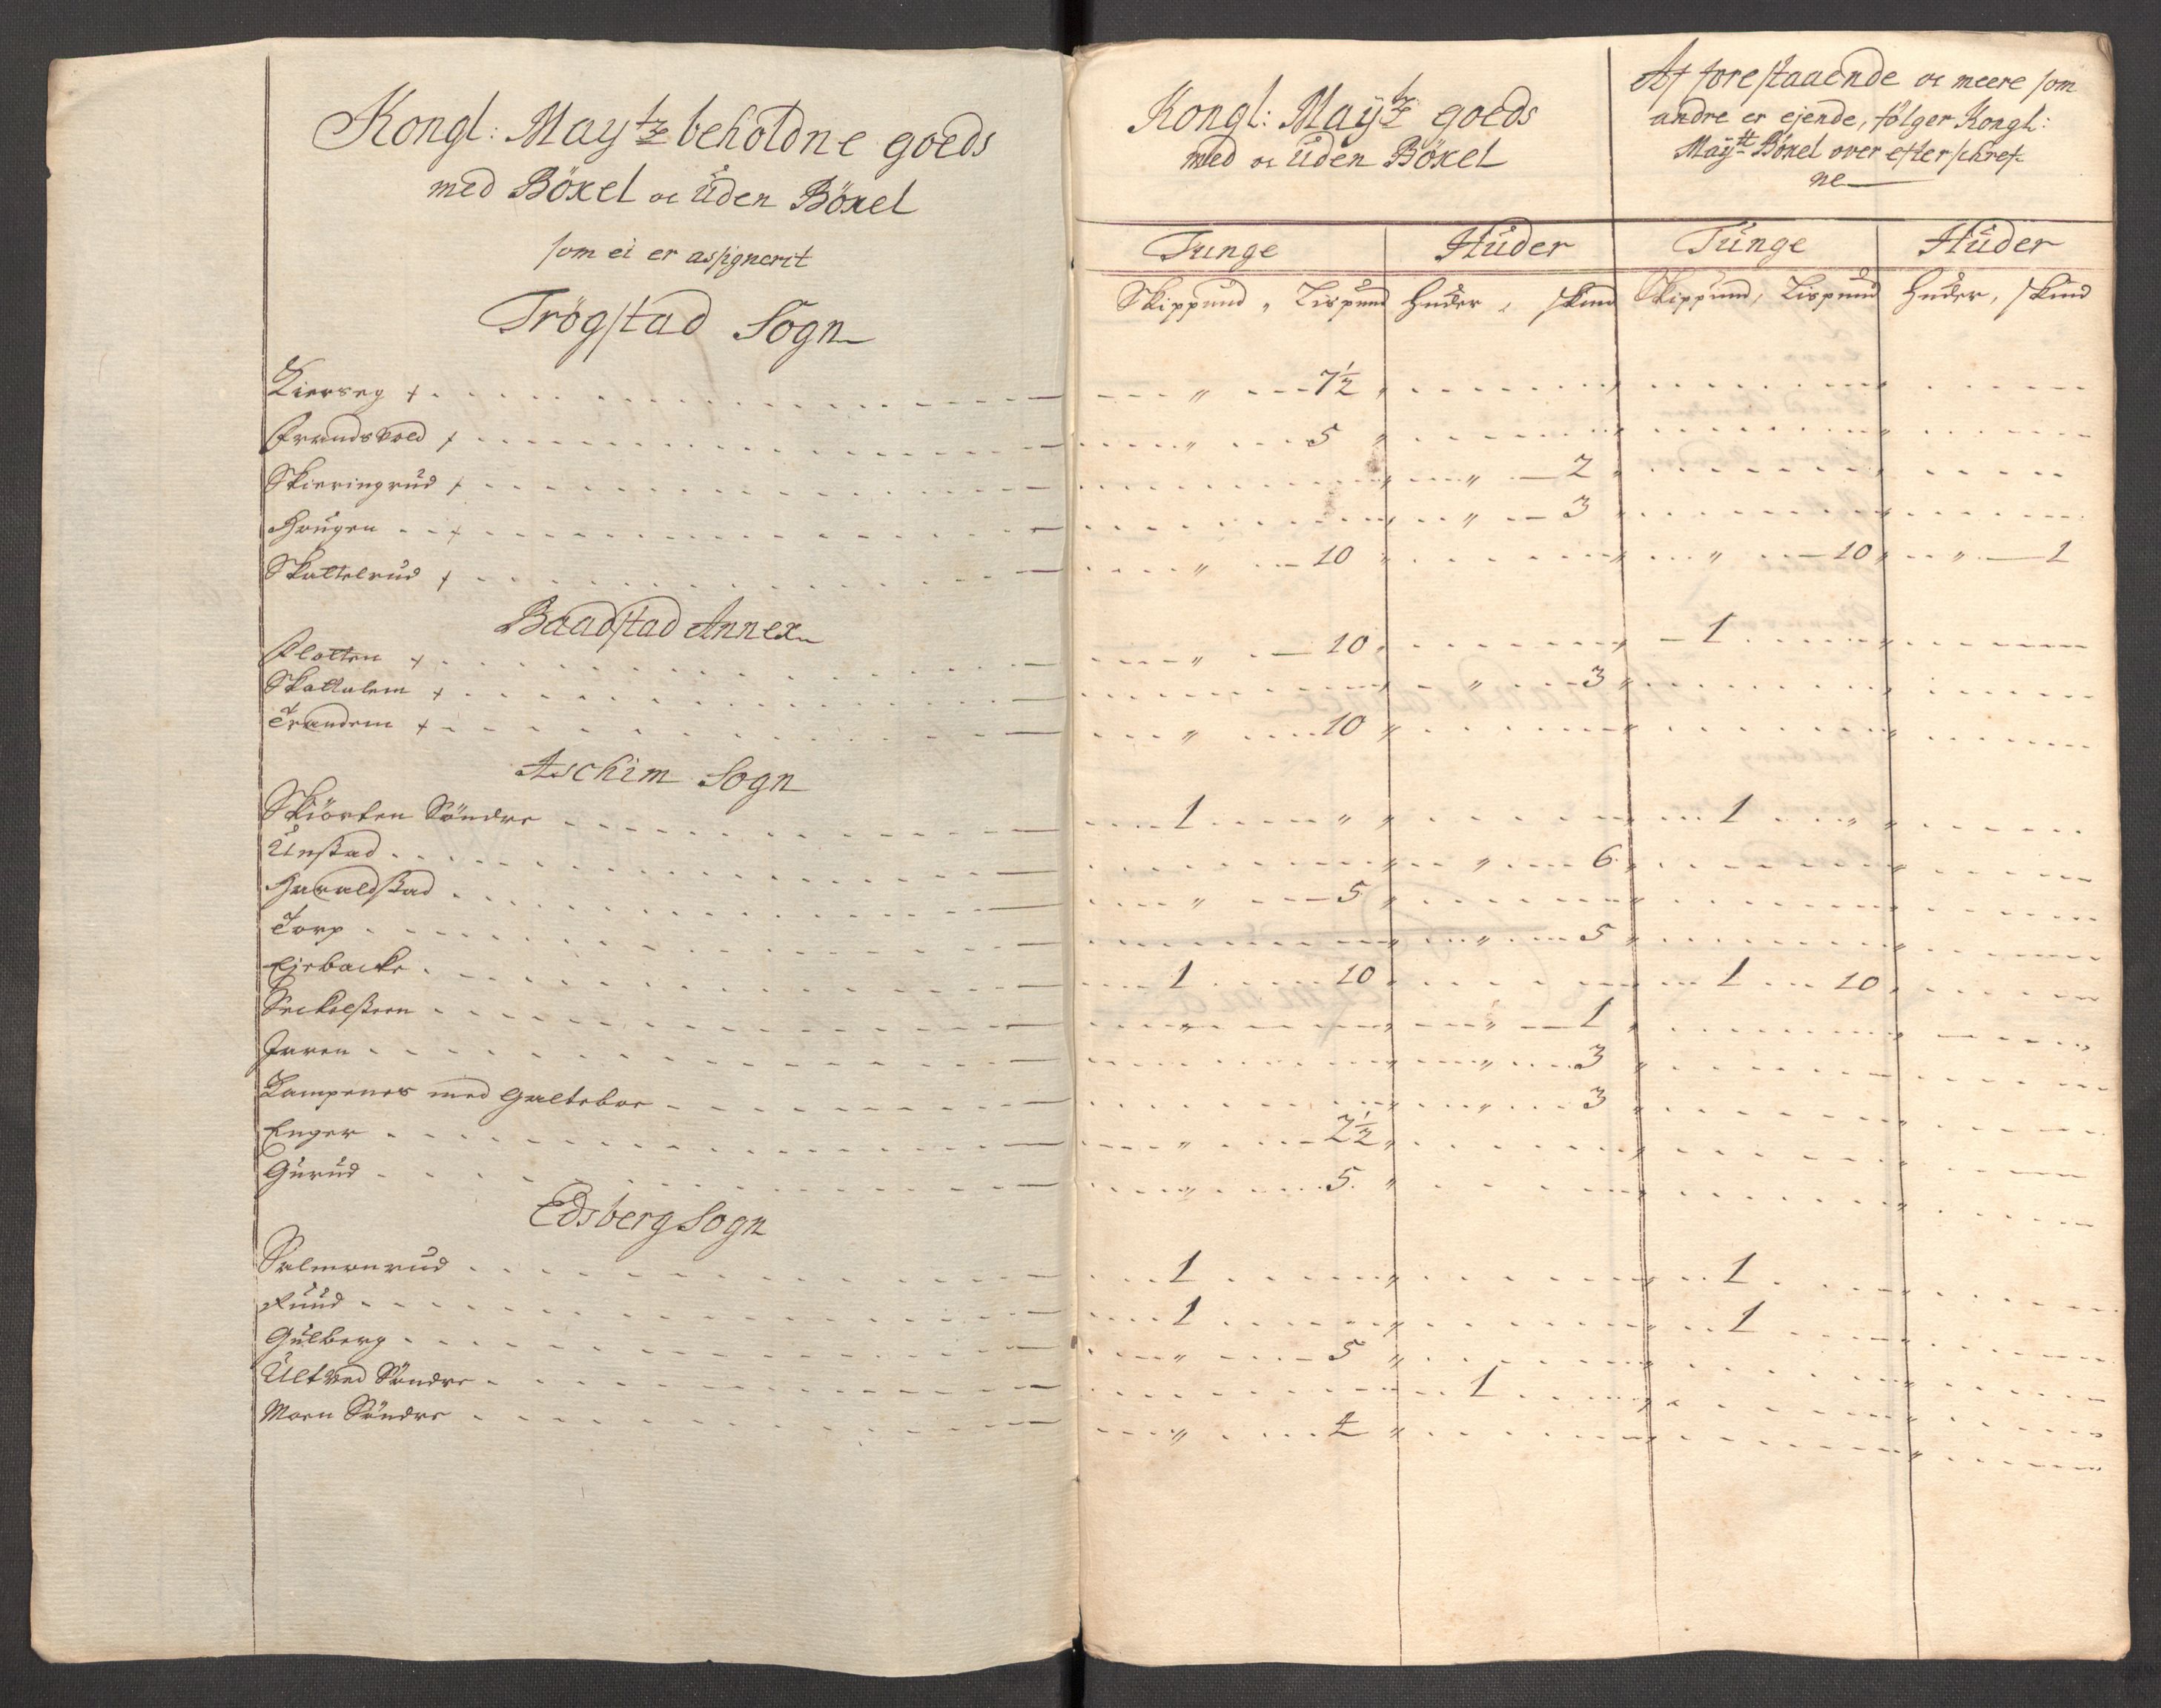 Kongl: Mayts beholdne goeds
med Böxel oc uden Böxel
som ei er assignerit
Trögstad Sogn
Kierseg +
Frandsvold +
Skieringrud +
Hougen +
Skattelrud +
Baadstad Annex
Slotten +
Skattalem +
Trandem +
Aschim Sogn
Skiörten Söndre
Unstad
Haraldstad
Torp
Ejebacke
Seckelsteen
Jaren
Kampenes med Galteboe
Enger
Gurud
Edsberg Sogn
Salmonrud
Ruud
Gulberg
Ultved Söndre
Moen Söndre
Kongl: Mayts goeds
med oc uden Böxel
Af forestaaende oc meere som
andre er ejende, fölger Kongl:
Maytt Böxel over efterschref-
ne
Tunge Huder Tunge Huder
Skippund, Lispund Huder, skind Skippund, Lispund Huder, skind
" 7½
" 5
" 2
" 3
" 10 " 10 " 1
" 10 1
" 3
" 10
1 " 1 "
" 6
" 5
" 5
1 10 1 10
" 1
" 3
" 3
" 2½
" 5
1 1
1 1
" 5
1
" 4